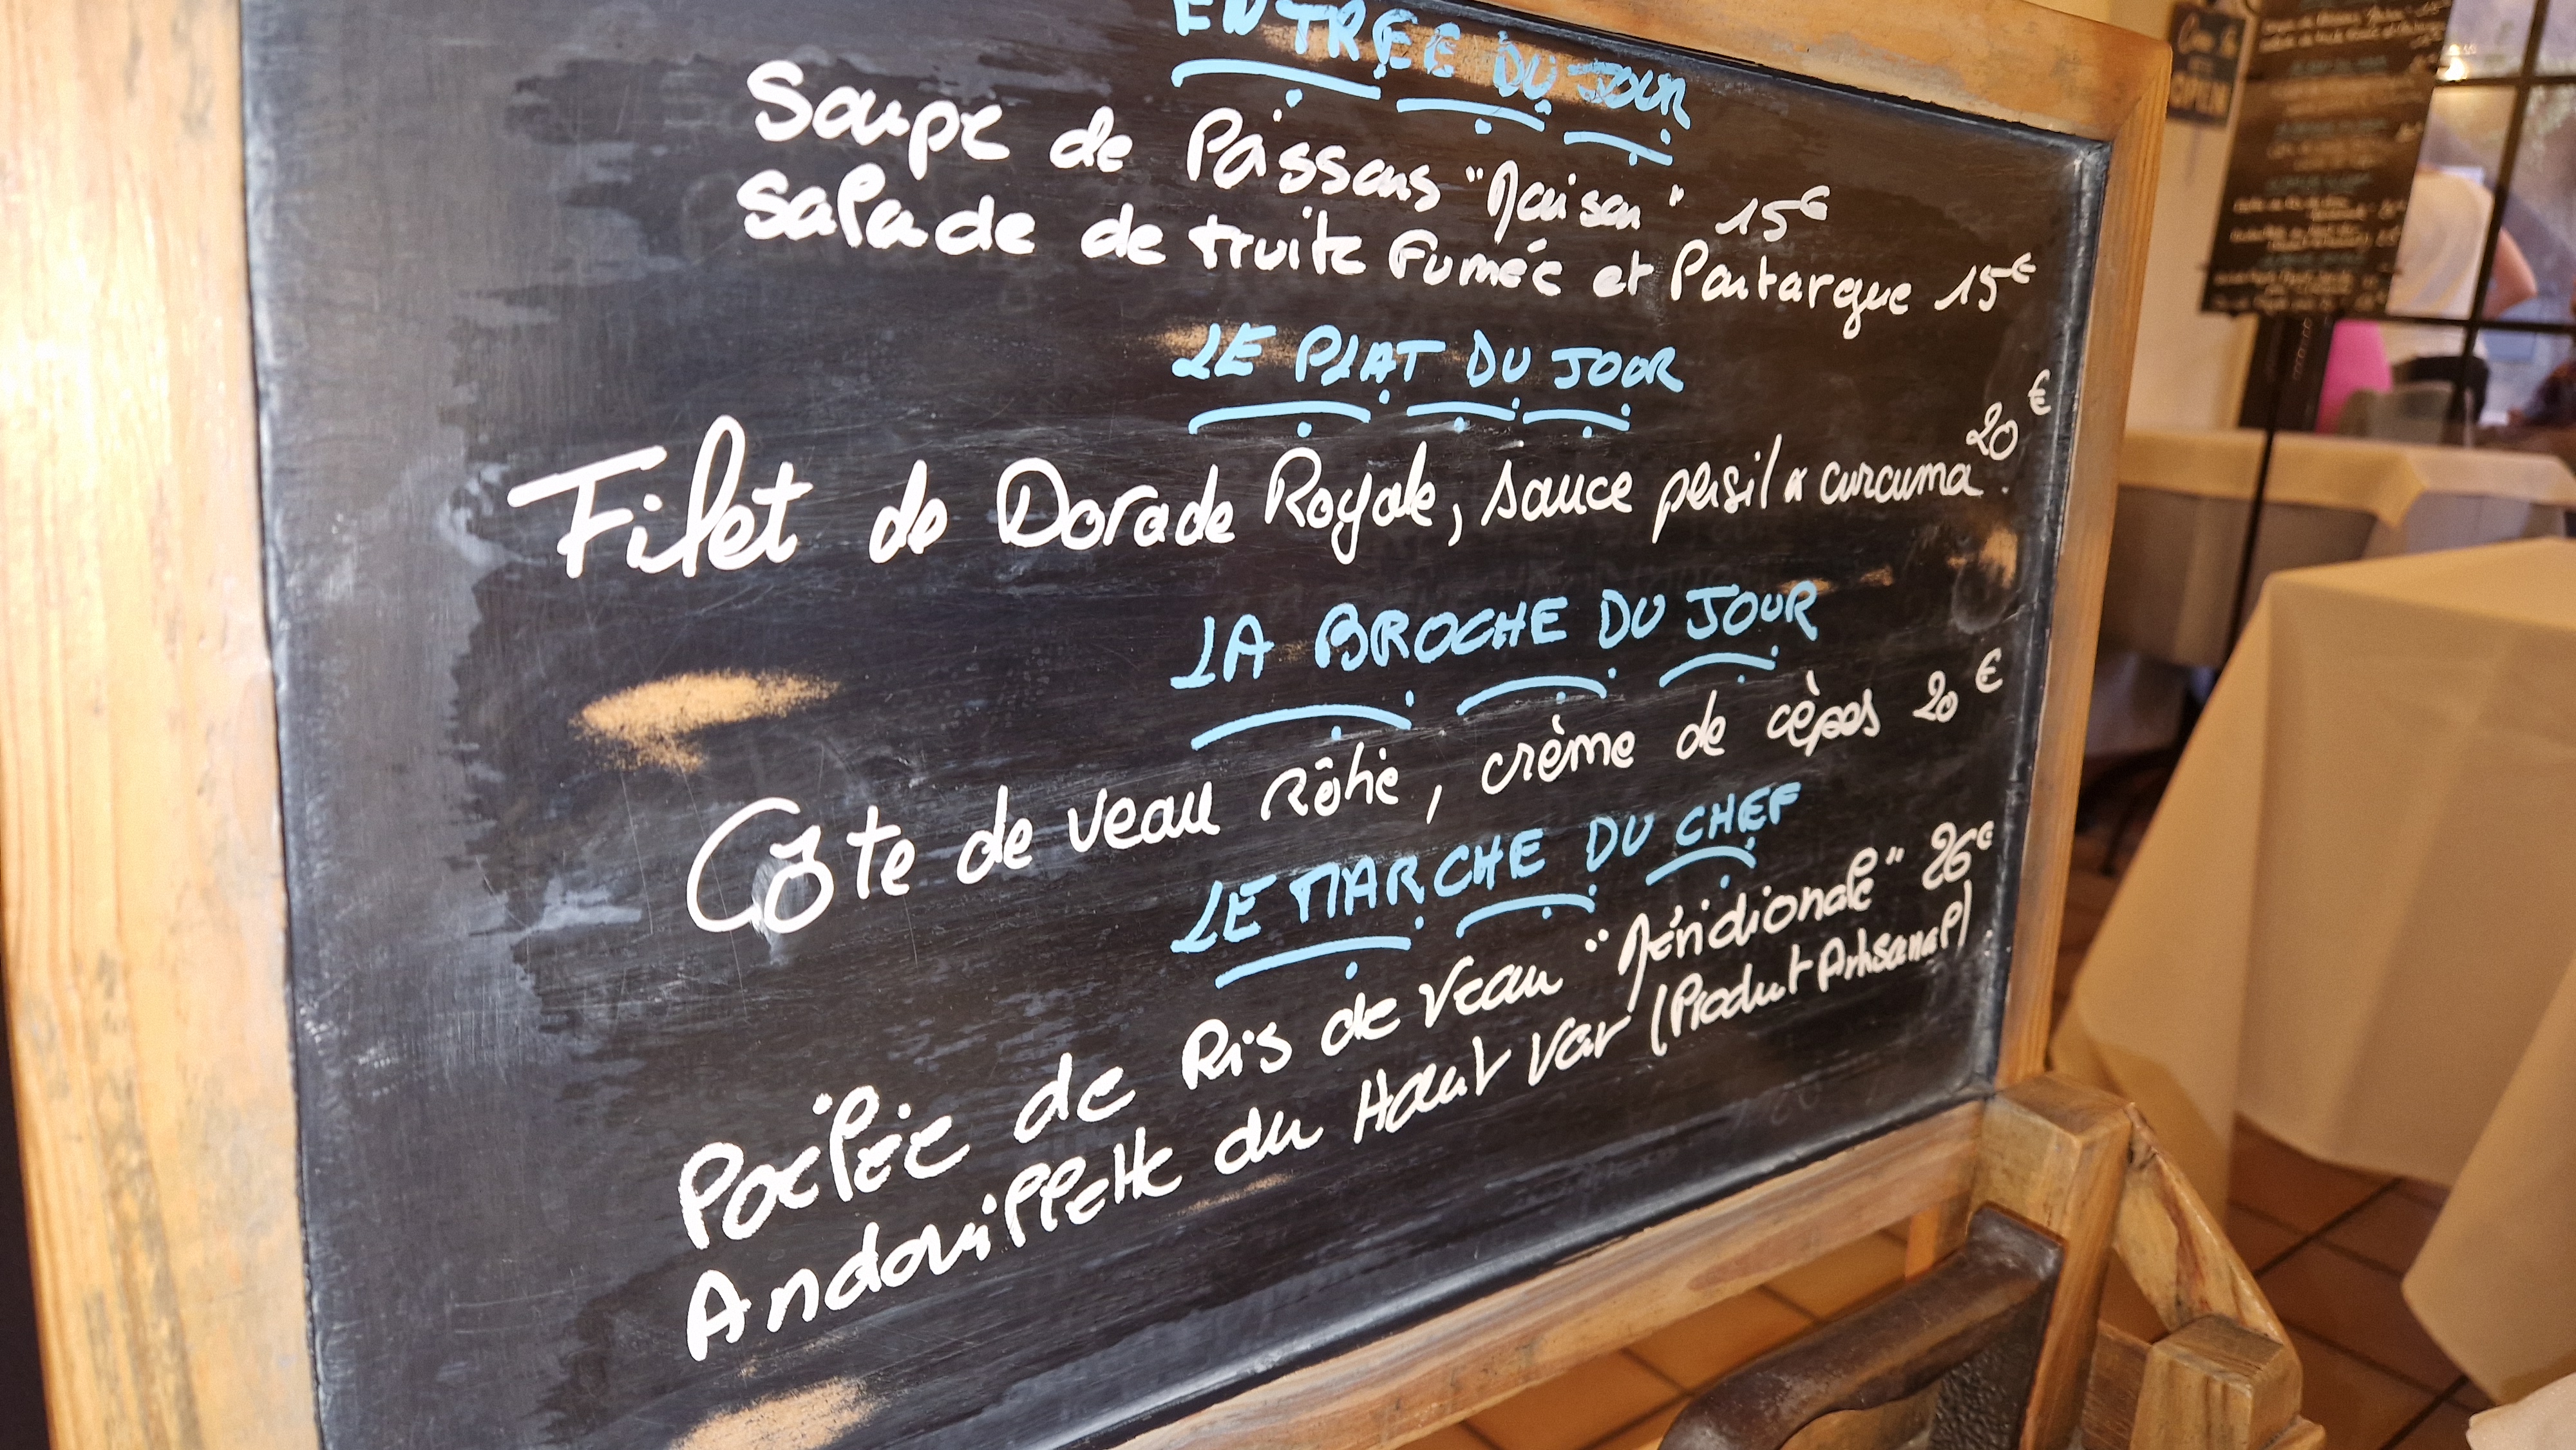 ENTREE DU JOUR
Soupe de Poissons "Maison" 15€
Salade de truite Fumée et Poutargue 15€
LE PLAT DU JOUR
Filet de Dorade Royale, sauce persil & curcuma. 20€
LA BROCHE DU JOUR
Côte de veau rôtie, crème de cèpes 20€
LE MARCHE DU CHEF
Poêlée de Ris de Veau "Méridionale" 26€
Andouillette du Haut Var (Produit Artisanal)
OPEN